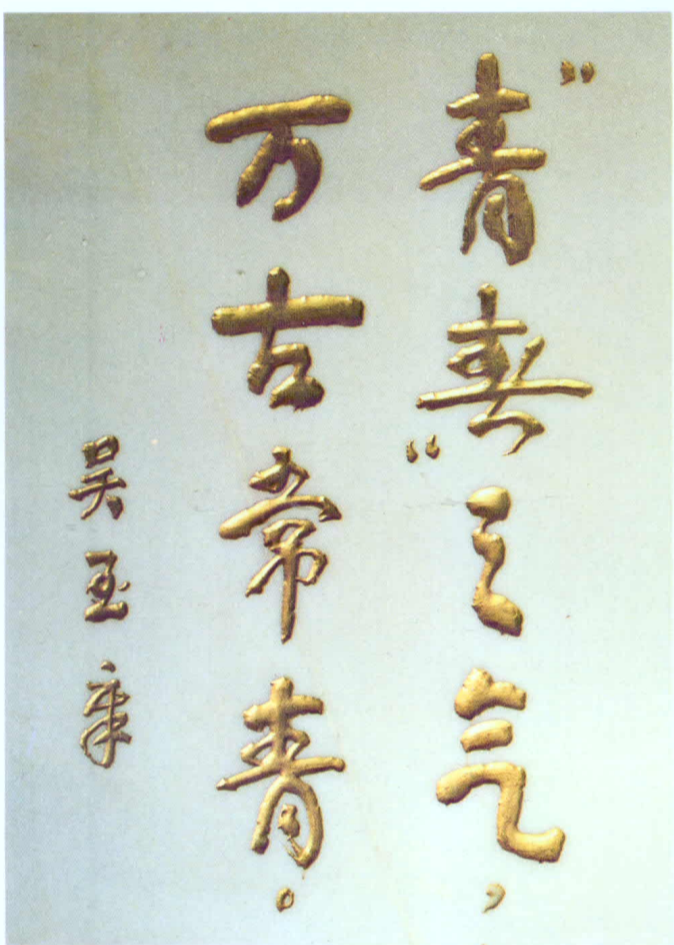 "青春"之气，
万古常青。
吴玉章